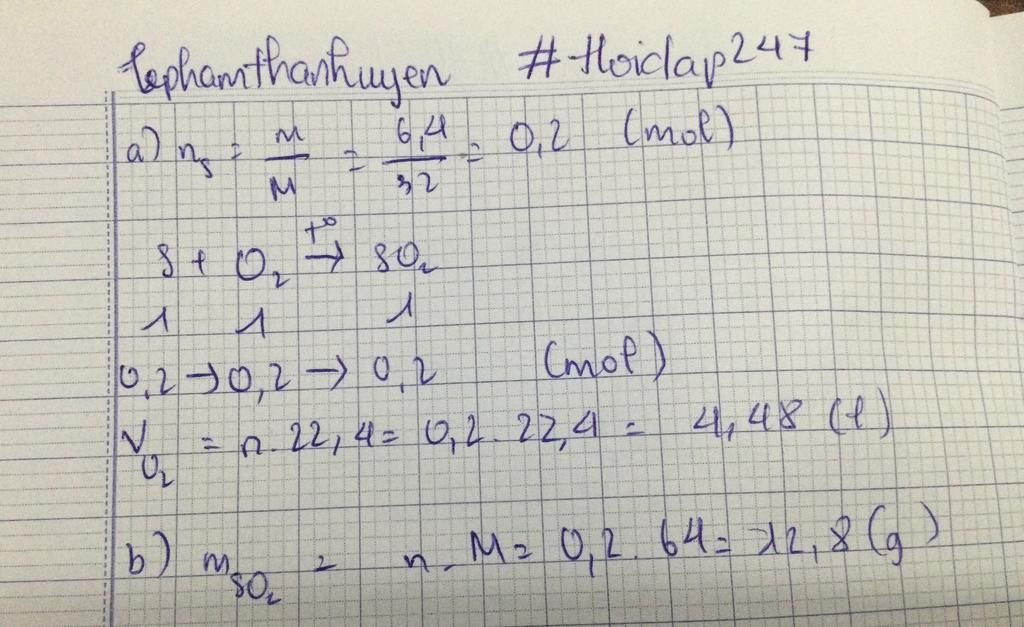 lephamthanhuyen #Hoidap247
a) nS = m/M = 6,4/32 = 0,2 (mol)
S + O2 t° → SO2
1 1 1
0,2 → 0,2 → 0,2 (mol)
VO2 = n . 22,4 = 0,2 . 22,4 = 4,48 (l)
b) mSO2 = n . M = 0,2 . 64 = 12,8 (g)